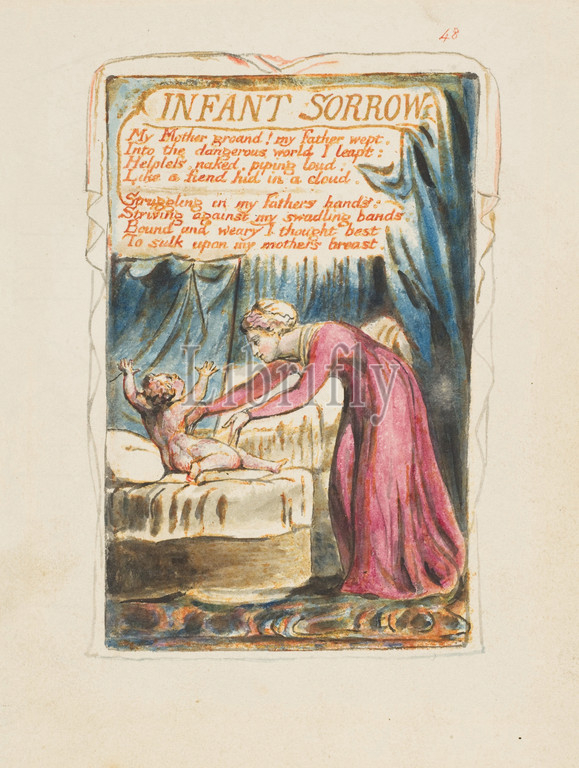 48
INFANT SORROW
My Mother groand! my Father wept.
Into the dangerous world I leapt:
Helpless, naked, piping loud:
Like a fiend hid in a cloud.
Struggling in my fathers hands:
Striving against my swadling bands:
Bound and weary I thought best
To sulk upon my mothers breast.
Librifly